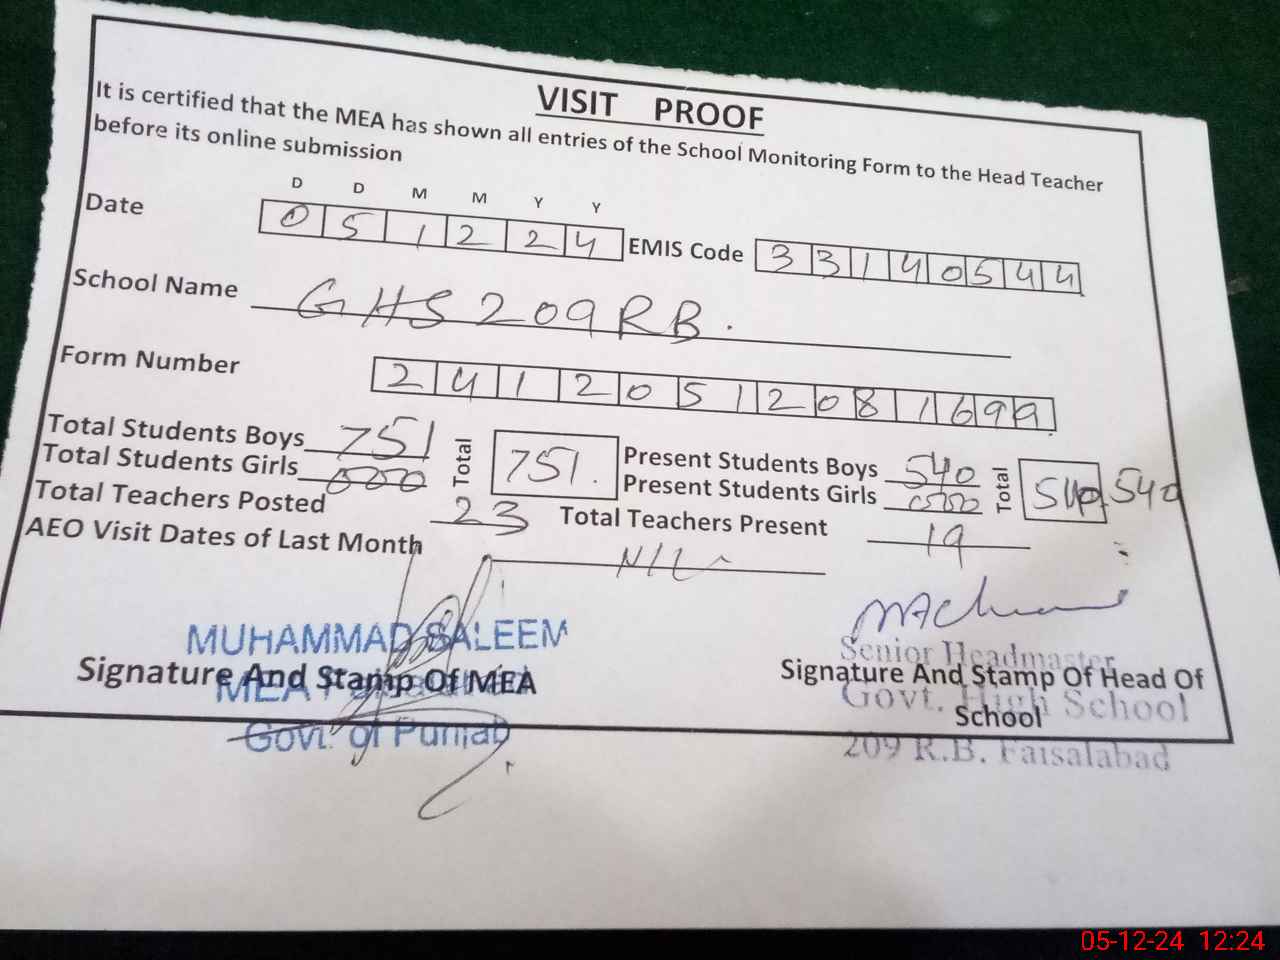 VISIT PROOF
It is certified that the MEA has shown all entries of the School Monitoring Form to the Head Teacher
before its online submission
D D M M Y Y
Date 0 5 1 2 2 4 EMIS Code 3 3 1 4 0 5 4 4
School Name GHS 209 RB.
Form Number 2 4 1 2 0 5 1 2 0 8 1 6 9 9
Total Students Boys 751 Total 751. Present Students Boys 540 Total 540 540
Total Students Girls 000 Present Students Girls 000
Total Teachers Posted 23 Total Teachers Present 19
AEO Visit Dates of Last Month NIL
MUHAMMAD SALEEM
Senior Headmaster
Signature And Stamp Of MEA Signature And Stamp Of Head Of
MEA
Govt. High School
School
Govt. of Punjab
209 R.B. Faisalabad
05-12-24 12:24